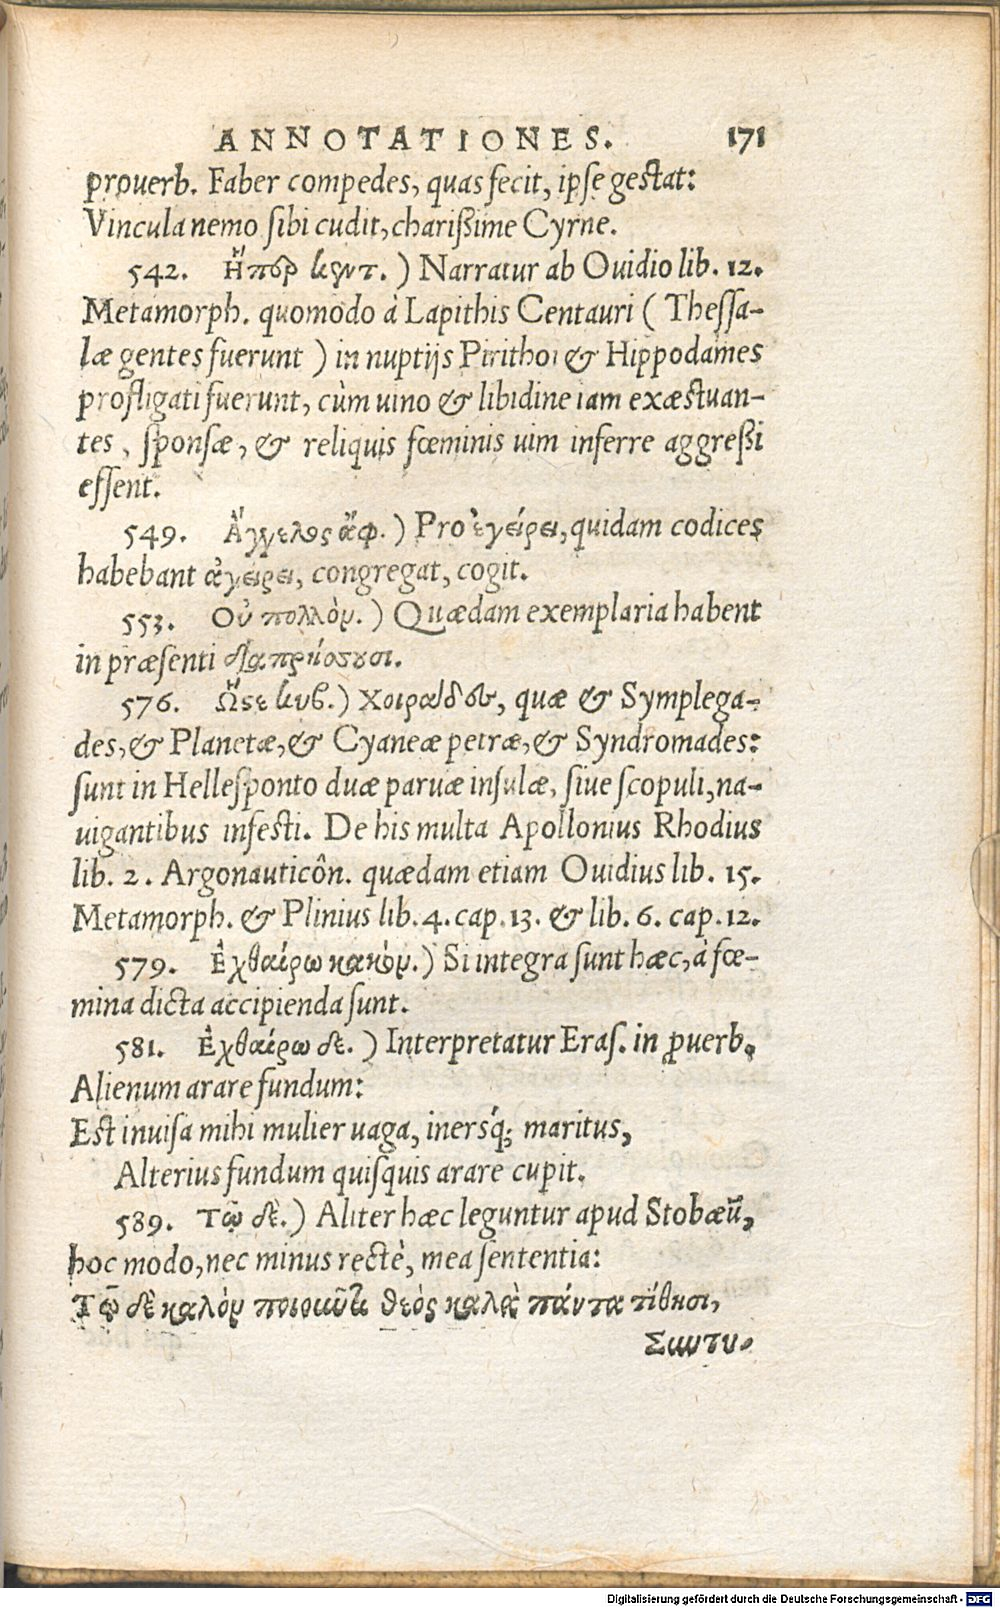 ANNOTATIONES. 171
prouerb. Faber compedes, quas fecit, ipse gestat:
Vincula nemo sibi cudit, charißime Cyrne.
542. Ἤπερ κεντ. ) Narratur ab Ouidio lib. 12.
Metamorph. quomodo à Lapithis Centauri ( Thessa-
læ gentes fuerunt ) in nuptijs Pirithoi & Hippodames
profligati fuerunt, cùm uino & libidine iam exæstuan-
tes, sponsæ, & reliquis fœminis uim inferre aggreßi
essent.
549. Ἄγγελος ἄφ. ) Pro ἐγείρει, quidam codices
habebant ἀγείρει, congregat, cogit.
553. Οὐ πολλὸν. ) Quædam exemplaria habent
in præsenti διαπρήσσουσι.
576. Ὥστε κυβ. ) Χοιράδων, quæ & Symplega-
des, & Planetæ, & Cyaneæ petræ, & Syndromades:
sunt in Hellesponto duæ paruæ insulæ, siue scopuli, na-
uigantibus infesti. De his multa Apollonius Rhodius
lib. 2. Argonauticôn. quædam etiam Ouidius lib. 15.
Metamorph. & Plinius lib. 4. cap. 13. & lib. 6. cap. 12.
579. Ἐχθαίρω κακόν. ) Si integra sunt hæc, à fœ-
mina dicta accipienda sunt.
581. Ἐχθαίρω δὲ. ) Interpretatur Eras. in ꝓuerb.
Alienum arare fundum:
Est inuisa mihi mulier uaga, inersq́; maritus,
Alterius fundum quisquis arare cupit.
589. Τῷ δὲ. ) Aliter hæc leguntur apud Stobæū,
hoc modo, nec minus rectè, mea sententia:
Τῷ δὲ καλὸν ποιοῦντι θεὸς καλὰ πάντα τίθησι,
Συντυ-
Digitalisierung gefördert durch die Deutsche Forschungsgemeinschaft - DFG